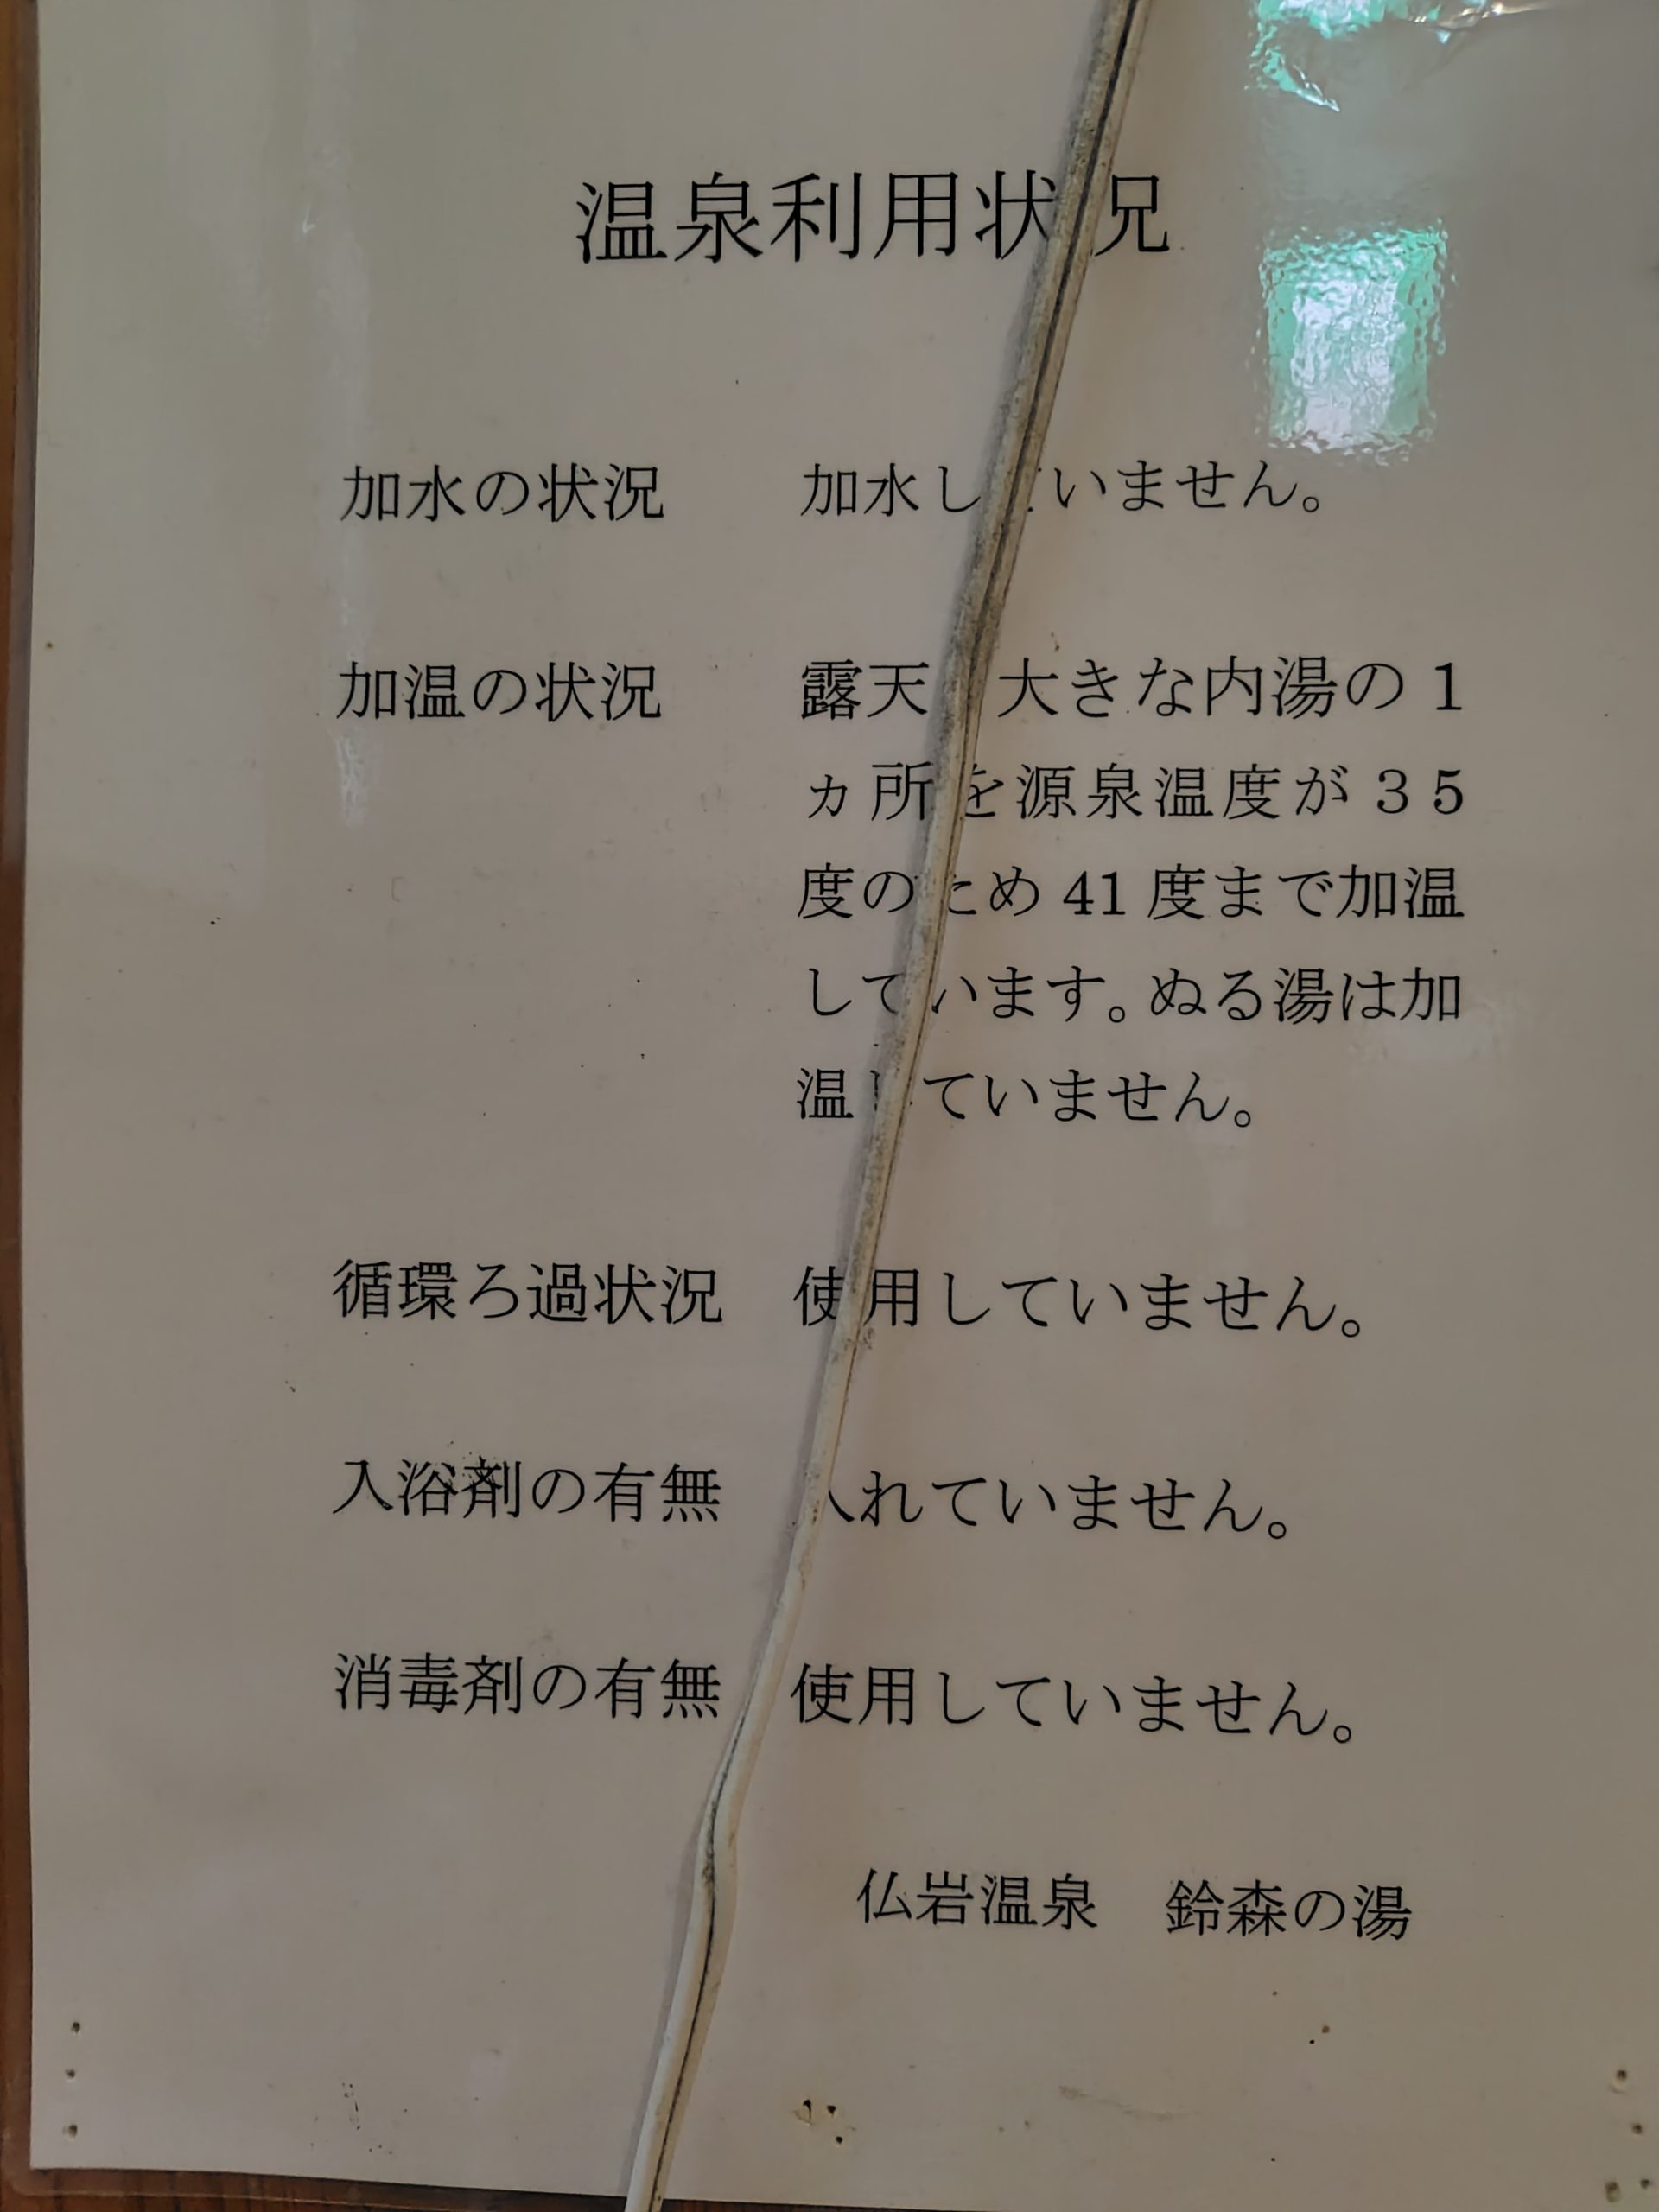 温泉利用状況
加水の状況 加水していません。
加温の状況 露天 大きな内湯の1
ヵ所を源泉温度が35
度のため41度まで加温
しています。ぬる湯は加
温していません。
循環ろ過状況 使用していません。
入浴剤の有無 入れていません。
消毒剤の有無 使用していません。
仏岩温泉 鈴森の湯